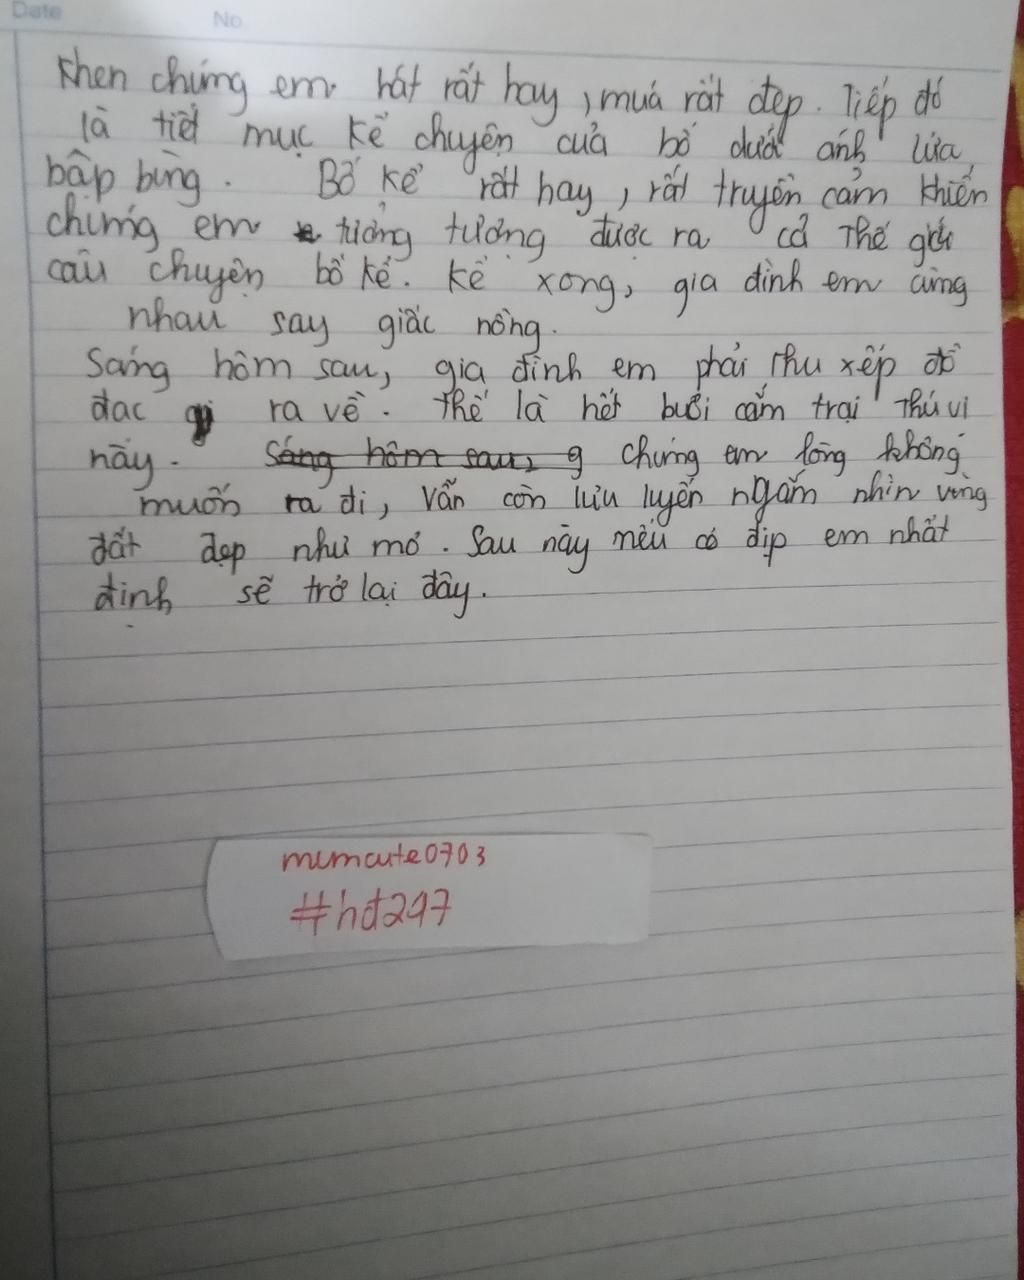 Date No
khen chúng em hát rất hay, múa rất đẹp. Tiếp đó
là tiết mục kể chuyện của bố dưới ánh lửa
bập bùng. Bố kể rất hay, rất truyền cảm khiến
chúng em tưởng tượng được ra cả thế giới
câu chuyện bố kể. Kể xong, gia đình em cùng
nhau say giấc nồng.
Sáng hôm sau, gia đình em phải thu xếp đồ
đạc ra về. Thế là hết buổi cắm trại thú vị
này. Sáng hôm sau, g chúng em lòng không
muốn ra đi, vẫn còn lưu luyến ngắm nhìn vùng
đất đẹp như mơ. Sau này nếu có dịp em nhất
định sẽ trở lại đây.
mumcute0703
#hđ247